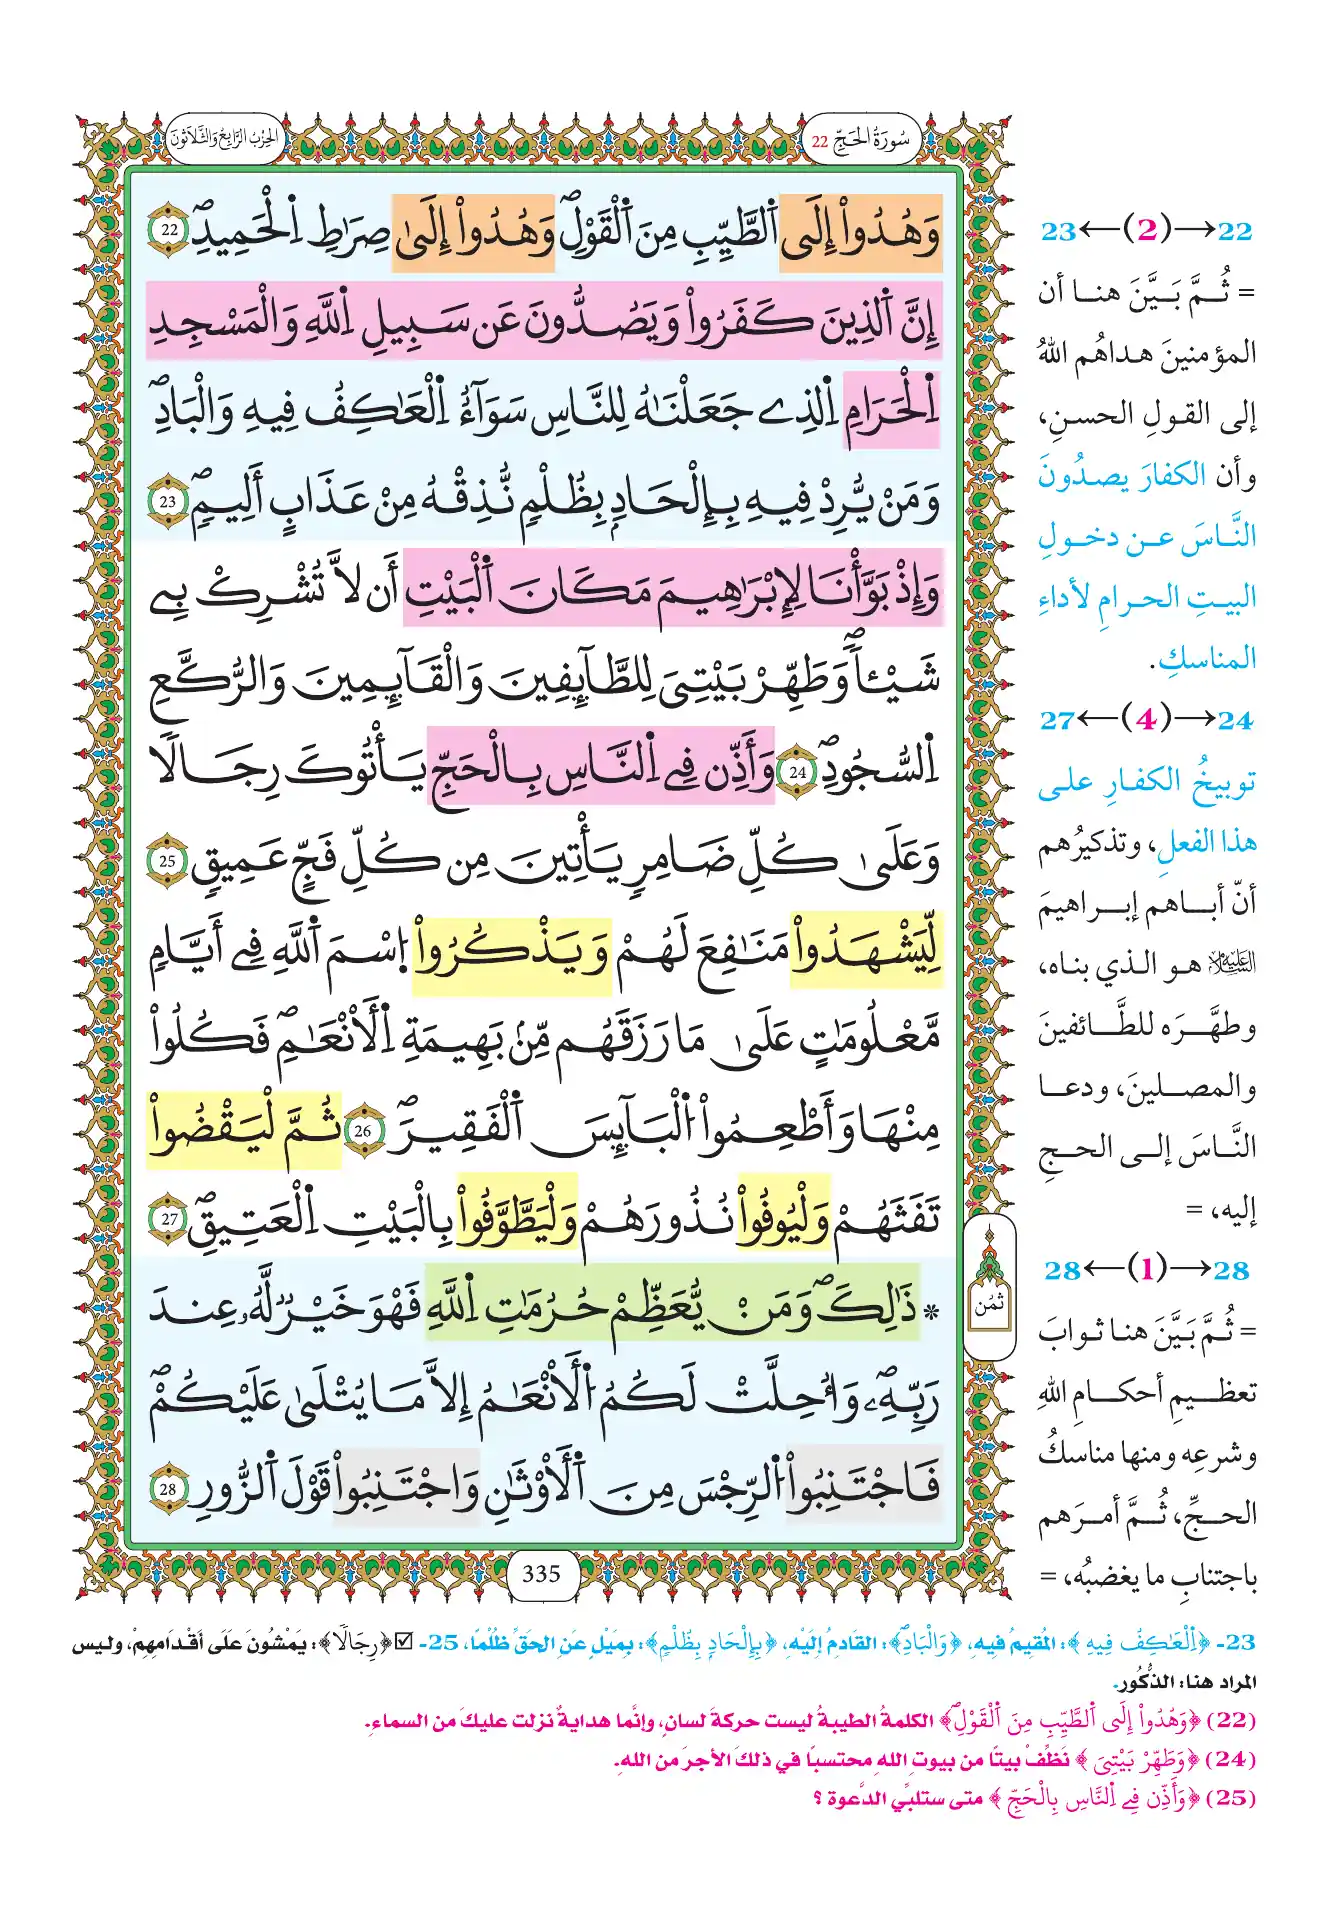 سُورَةُ الحَجِّ 22
الحِزْبُ الرَّابِعُ وَالثَّلَاثُونَ
وَهُدُوٓاْ إِلَى اَ۬لطَّيِّبِ مِنَ اَ۬لْقَوْلِۖ وَهُدُوٓاْ إِلَىٰ صِرَٰطِ اِ۬لْحَمِيدِۖ 22
إِنَّ اَ۬لذِينَ كَفَرُواْ وَيَصُدُّونَ عَن سَبِيلِ اِ۬للَّهِ وَالْمَسْجِدِ
اِ۬لْحَرَامِ اِ۬لذِے جَعَلْنَٰهُ لِلنَّاسِ سَوَآءٌ اِ۬لْعَٰكِفُ فِيهِ وَالْبَادِۦۖ
وَمَنْ يُّرِدْ فِيهِ بِإِلْحَادِۢ بِظُلْمٖ نُّذِقْهُ مِنْ عَذَابٍ أَلِيمٖۖ 23
وَإِذْ بَوَّأْنَا لِإِبْرَٰهِيمَ مَكَانَ اَ۬لْبَيْتِ أَن لَّا تُشْرِكْ بِے
شَيْـٔاٗۖ وَطَهِّرْ بَيْتِيَ لِلطَّآئِفِينَ وَالْقَآئِمِينَ وَالرُّكَّعِ
اِ۬لسُّجُودِۖ 24 وَأَذِّن فِے اِ۬لنَّاسِ بِالْحَجِّ يَأْتُوكَ رِجَالٗا
وَعَلَىٰ كُلِّ ضَامِرٖ يَأْتِينَ مِن كُلِّ فَجٍّ عَمِيقٖ 25
لِّيَشْهَدُواْ مَنَٰفِعَ لَهُمْ وَيَذْكُرُواْ اُ۪سْمَ اَ۬للَّهِ فِے أَيَّامٖ
مَّعْلُومَٰتٍ عَلَىٰ مَا رَزَقَهُم مِّنۢ بَهِيمَةِ اِ۬لْأَنْعَٰمِۖ فَكُلُواْ
مِنْهَا وَأَطْعِمُواْ اُ۬لْبَآئِسَ اَ۬لْفَقِيرَۖ 26 ثُمَّ لْيَقْضُواْ
تَفَثَهُمْ وَلْيُوفُواْ نُذُورَهُمْ وَلْيَطَّوَّفُواْ بِالْبَيْتِ اِ۬لْعَتِيقِۖ 27
* ذَٰلِكَۖ وَمَنْ يُّعَظِّمْ حُرُمَٰتِ اِ۬للَّهِ فَهُوَ خَيْرٞ لَّهُۥ عِندَ
رَبِّهِۦۖ وَأُحِلَّتْ لَكُمُ اُ۬لْأَنْعَٰمُ إِلَّا مَا يُتْلَىٰ عَلَيْكُمْۖ
فَاجْتَنِبُواْ اُ۬لرِّجْسَ مِنَ اَ۬لْأَوْثَٰنِ وَاجْتَنِبُواْ قَوْلَ اَ۬لزُّورِ 28
ثُمُن
335
22→(2)←23
= ثُمَّ بَيَّنَ هنا أن
المؤمنينَ هداهُم اللهُ
إلى القولِ الحسنِ،
وأن الكفارَ يصدُونَ
النَّاسَ عن دخولِ
البيتِ الحرامِ لأداءِ
المناسكِ.
24→(4)←27
توبيخُ الكفارِ على
هذا الفعلِ، وتذكيرُهم
أنّ أباهم إبراهيمَ
عليه السلام هو الذي بناه،
وطهَّرَه للطَّائفينَ
والمصلينَ، ودعا
النَّاسَ إلى الحجِ
إليه، =
28→(1)←28
= ثُمَّ بَيَّنَ هنا ثوابَ
تعظيمِ أحكامِ اللهِ
وشرعِه ومنها مناسكُ
الحجِّ، ثُمَّ أمرَهم
باجتنابِ ما يغضبُه، =
23- ﴿اِ۬لْعَٰكِفُ فِيهِ﴾: المُقِيمُ فِيهِ، ﴿وَالْبَادِۦۖ﴾: القَادِمُ إِلَيْهِ، ﴿بِإِلْحَادِۢ بِظُلْمٖ﴾: بِمَيْلٍ عَنِ الحَقِّ ظُلْمًا، 25- ☑ ﴿رِجَالٗا﴾: يَمْشُونَ عَلَى أَقْدَامِهِمْ، وليس
المراد هنا: الذُّكُور.
(22) ﴿وَهُدُوٓاْ إِلَى اَ۬لطَّيِّبِ مِنَ اَ۬لْقَوْلِۖ﴾ الكلمةُ الطيبةُ ليست حركةَ لسانٍ، وإنَّما هدايةٌ نزلت عليكَ من السماءِ.
(24) ﴿وَطَهِّرْ بَيْتِيَ﴾ نَظِّفْ بيتًا من بيوتِ اللهِ محتسبًا في ذلكَ الأجرَ من اللهِ.
(25) ﴿وَأَذِّن فِے اِ۬لنَّاسِ بِالْحَجِّ﴾ متى ستلبِّي الدَّعوة ؟